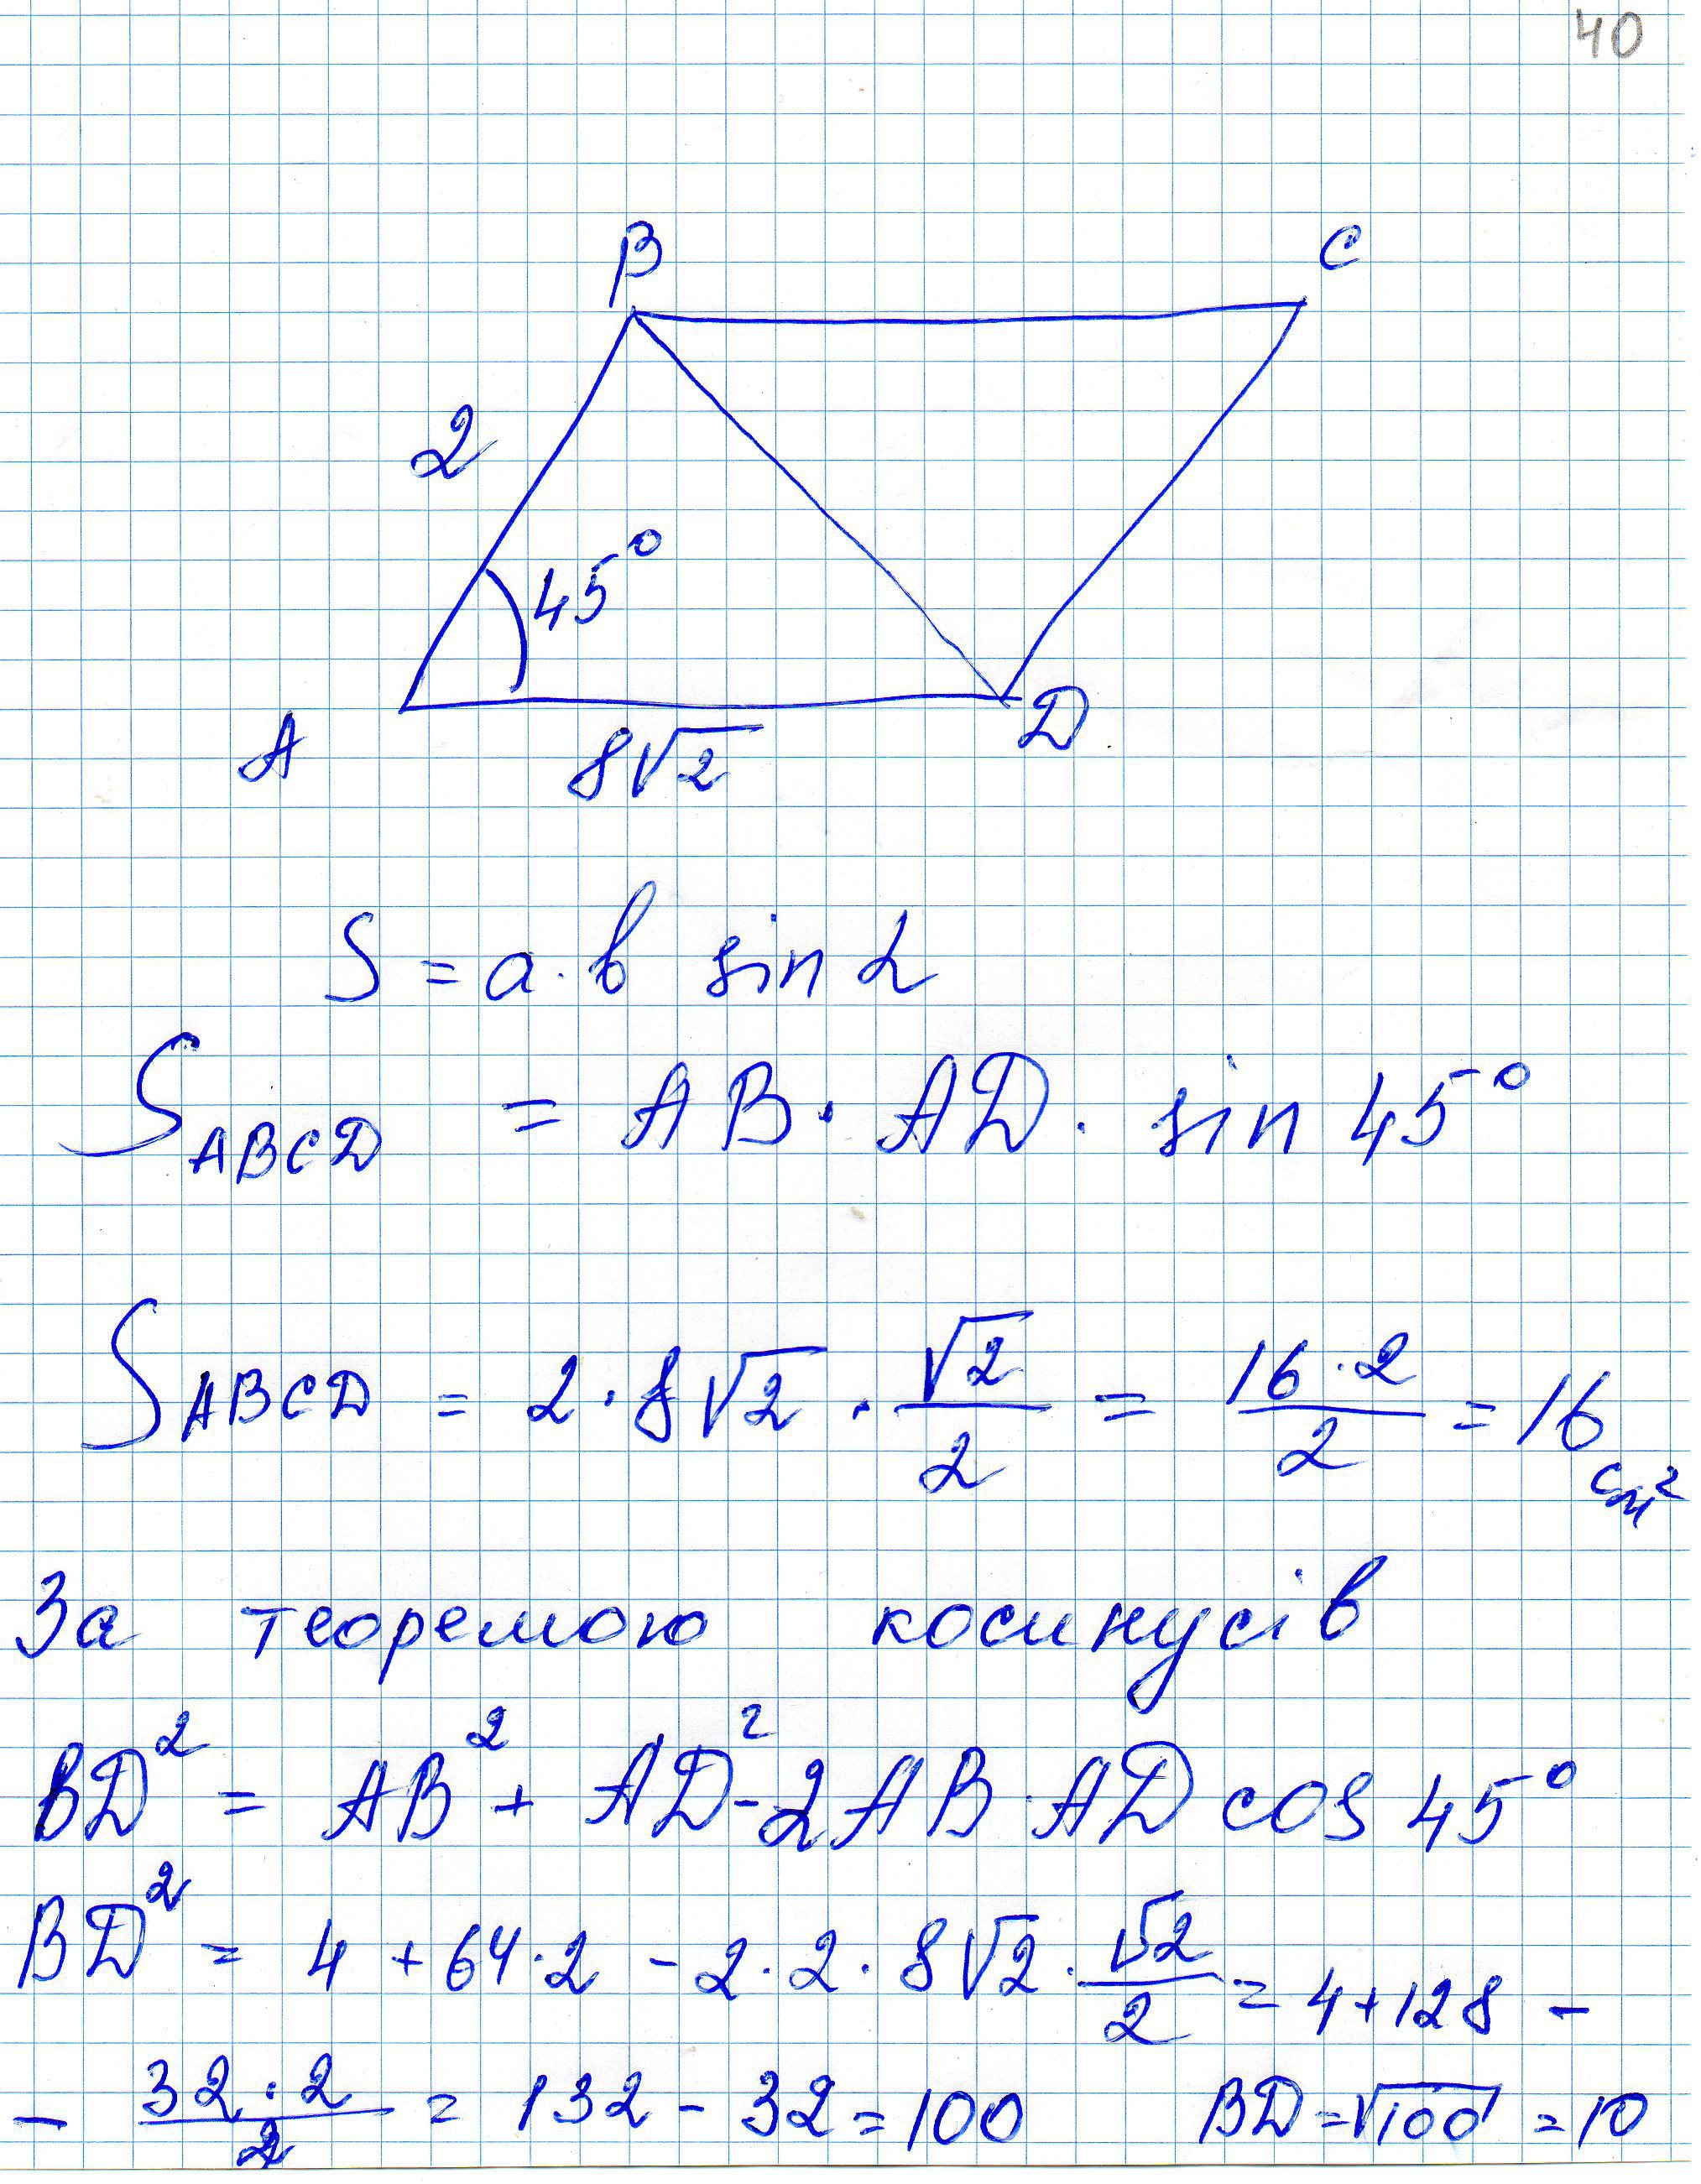 40
B
C
2
45°
A
D
8√2
S = a · b sin α
S_ABCD = AB · AD · sin 45°
S_ABCD = 2 · 8√2 · √2/2 = 16·2/2 = 16 см²
За теоремою косинусів
BD² = AB² + AD² - 2AB · AD cos 45°
BD² = 4 + 64·2 - 2·2·8√2 · √2/2 = 4+128 -
- 32·2/2 = 132 - 32 = 100 BD = √100 = 10